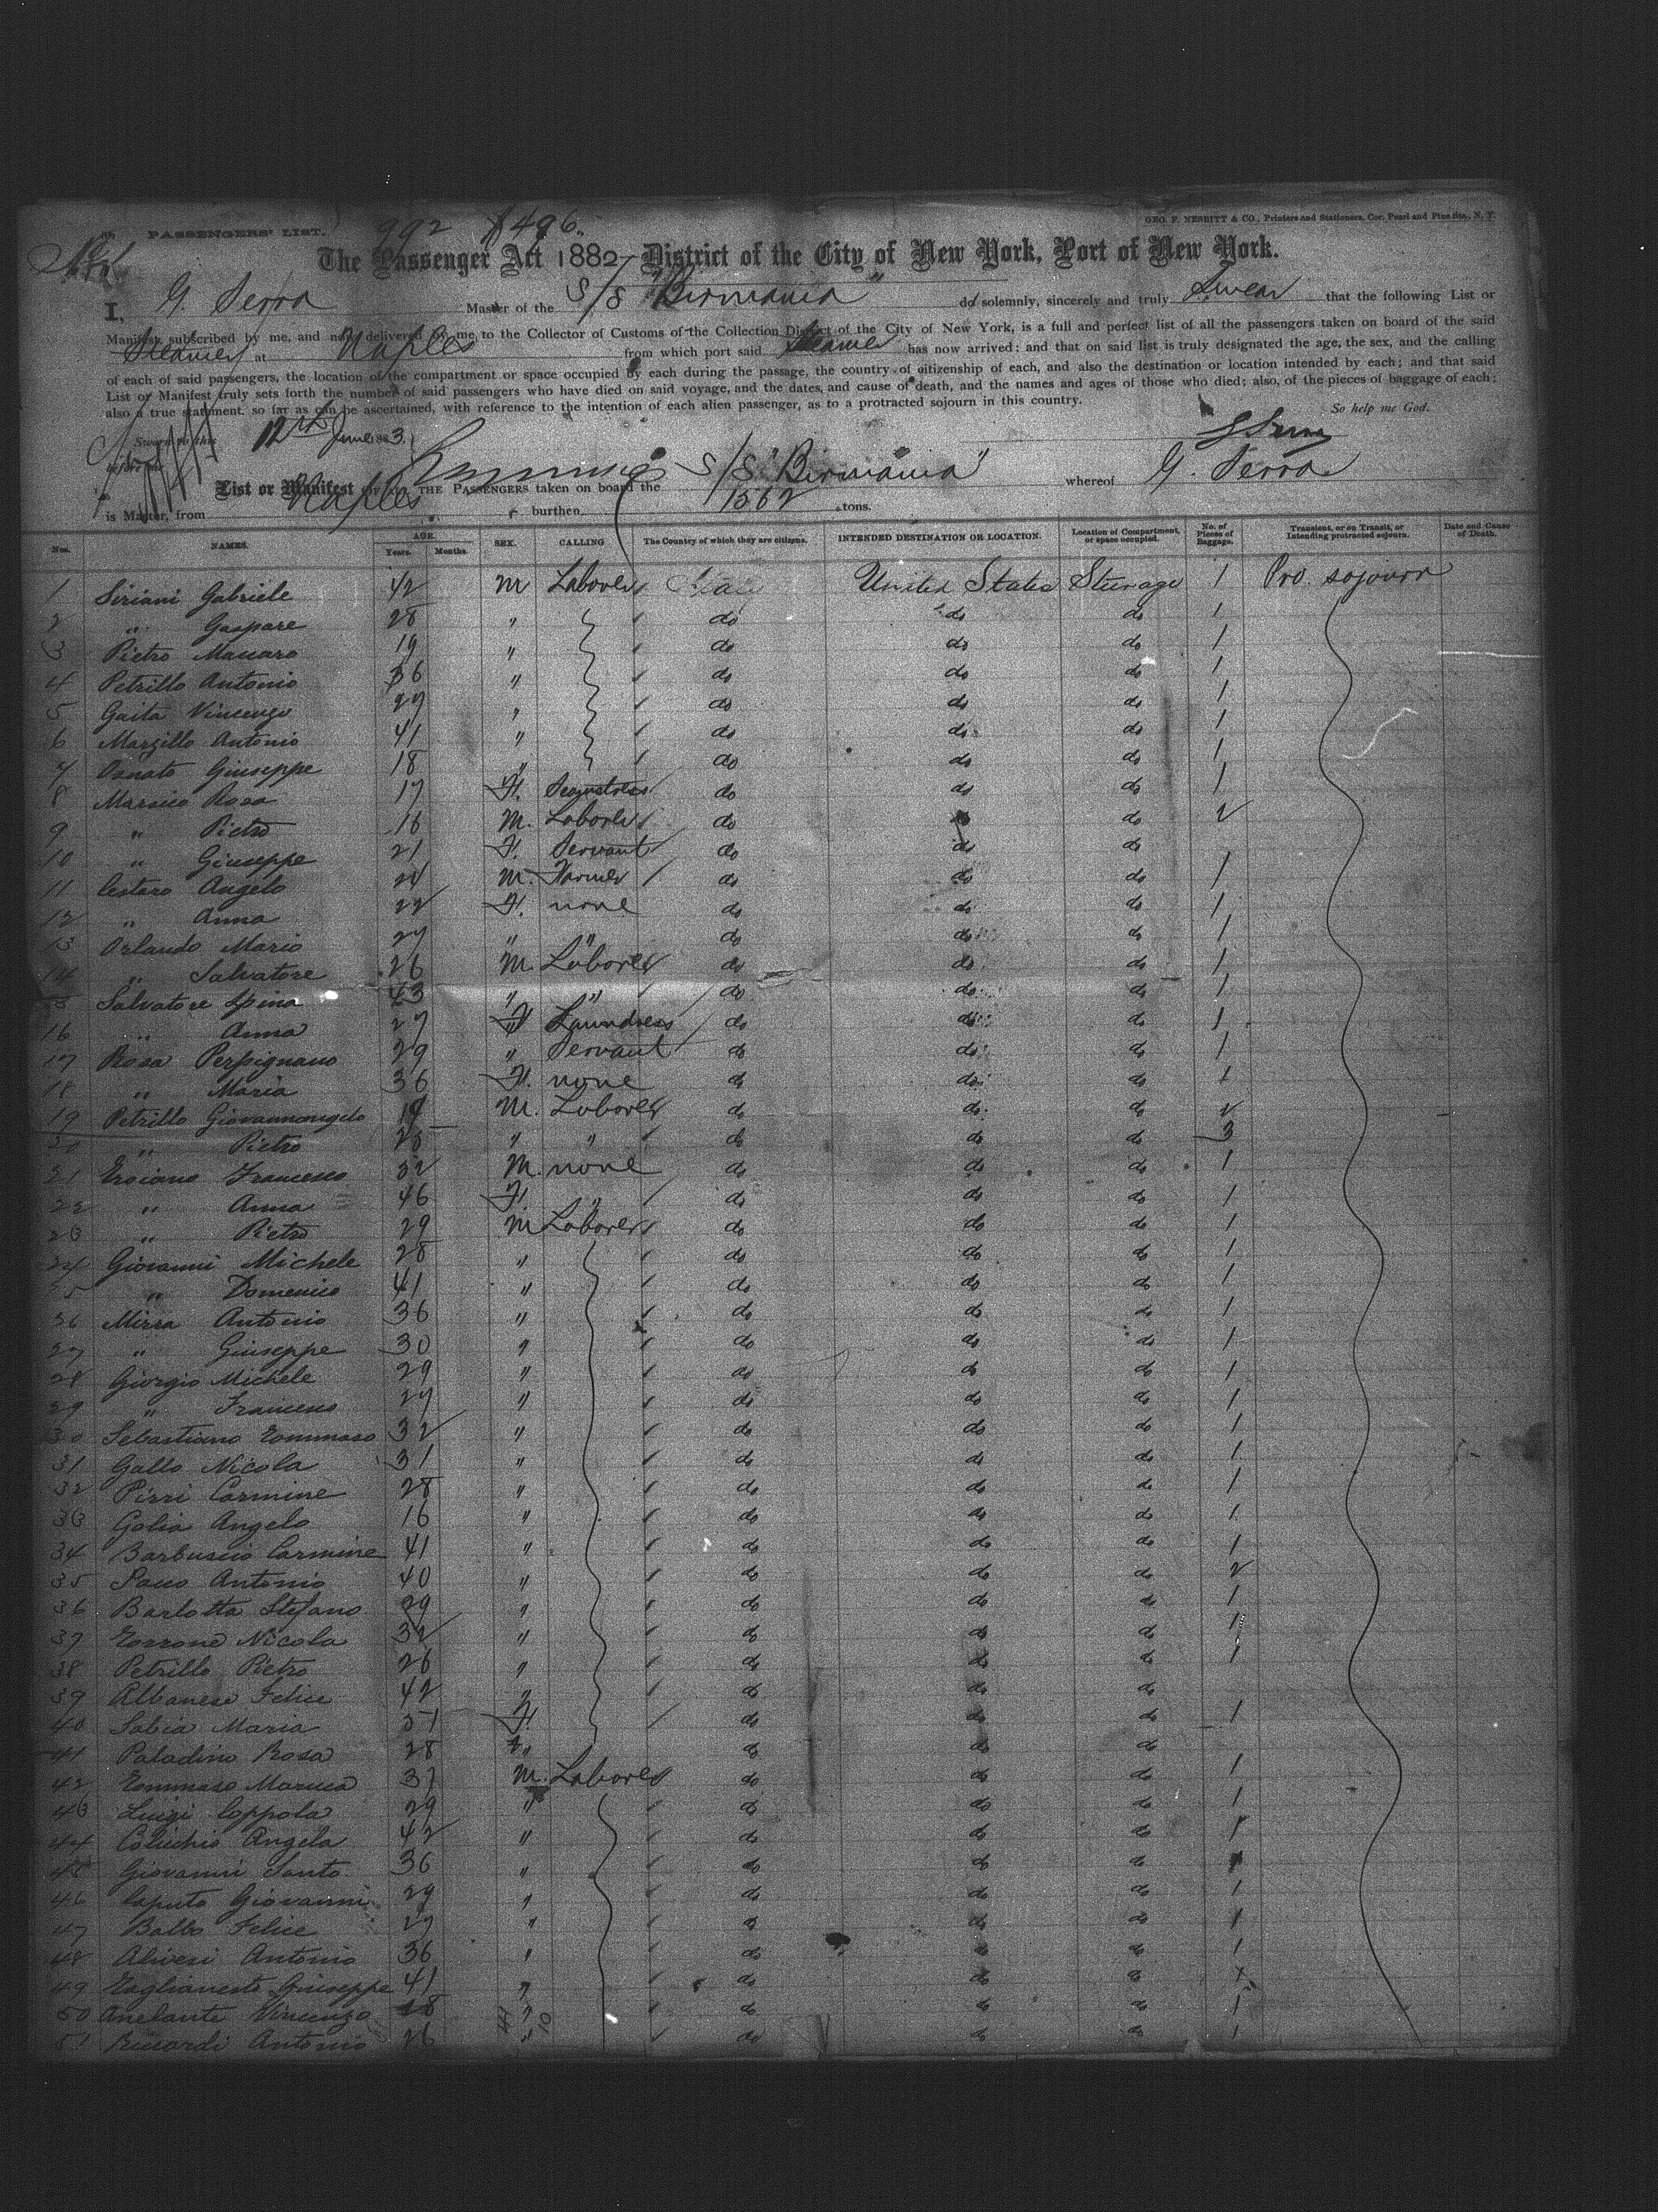 PASSENGERS' LIST. 992 $496.
GEO. F. NESBITT & CO., Printers and Stationers, Cor. Pearl and Pine Sts., N. Y.
The Passenger Act 1882 District of the City of New York, Port of New York.
I, G. Serra Master of the S/S "Birmania" do solemnly, sincerely and truly Swear that the following List or
Manifest, subscribed by me, and now delivered by me to the Collector of Customs of the Collection District of the City of New York, is a full and perfect list of all the passengers taken on board of the said
Steamer at Naples from which port said Steamer has now arrived; and that on said list is truly designated the age, the sex, and the calling
of each of said passengers, the location of the compartment or space occupied by each during the passage, the country of citizenship of each, and also the destination or location intended by each; and that said
List or Manifest truly sets forth the number of said passengers who have died on said voyage, and the dates, and cause of death, and the names and ages of those who died; also, of the pieces of baggage of each;
also a true statement, so far as can be ascertained, with reference to the intention of each alien passenger, as to a protracted sojourn in this country. So help me God.
Sworn to this 12th June 1883.
before me
List or Manifest OF ALL THE PASSENGERS taken on board the S/S "Birmania" whereof G. Serra
is Master, from Naples burthen 1562 tons.
Nos. NAMES. AGE. Years. Months. SEX. CALLING The Country of which they are citizens. INTENDED DESTINATION OR LOCATION. Location of Compartment, or space occupied. No. of Pieces of Baggage. Transient, or on Transit, or Intending protracted sojourn. Date and Cause of Death.
1 Siriani Gabriele 42 M Laborer Italy United States Steerage 1 Pro. sojourn
2 " Gaspare 28 " do do do 1
3 Pietro Mauaro 19 " do do do 1
4 Petrillo Antonio 36 " do do do 1
5 Gaita Vincenzo 27 " do do do 1
6 Margillo Antonio 41 " do do do 1
7 Osnato Giuseppe 18 " do do do 1
8 Marsico Rosa 17 F. Seamstress do do do 1
9 " Pietro 16 M. Laborer do do do 2
10 " Giuseppe 21 F. Servant do do do
11 Cestaro Angelo 24 M. Farmer do do do 1
12 " Anna 22 F. none do do do 1
13 Orlando Maria 27 " " do do do 1
14 " Salvatore 26 M. Laborer do do do 1
15 Salvatore Spina 43 " " do do do 1
16 " Anna 27 F Laundress do do do 1
17 Rosa Perpignano 29 " Servant do do do 1
18 " Maria 36 F. none do do do 1
19 Petrillo Giovannangelo 19 M. Laborer do do do 2
20 " Pietro 25 " " do do do 3
21 Troiano Francesco 52 M. none do do do 1
22 " Anna 46 F. " do do do 1
23 " Pietro 29 M Laborer do do do 1
24 Giovanni Michele 28 " do do do 1
25 " Domenico 41 " do do do 1
26 Mirra Antonio 36 " do do do 1
27 " Giuseppe 30 " do do do 1
28 Giorgio Michele 29 " do do do 1
29 " Francesco 27 " do do do 1
30 Sebastiano Tommaso 32 " do do do 1
31 Gallo Nicola 31 " do do do 1
32 Pirri Carmine 28 " do do do 1
33 Golia Angelo 16 " do do do 1
34 Barbuscio Carmine 41 " do do do 1
35 Pauo Antonio 40 " do do do 2
36 Barlotta Stefano 29 " do do do 1
37 Torrone Nicola 32 " do do do 1
38 Petrillo Pietro 26 " do do do 1
39 Albanese Felice 42 " do do do
40 Sabia Maria 51 F. do do do 1
41 Paladino Rosa 28 " do do do
42 Tommaso Maruca 37 M. Laborer do do do 1
43 Luigi Coppola 29 " do do do 1
44 Coluchio Angela 42 " do do do 1
45 Giovanni Santo 36 " do do do 1
46 Caputo Giovanni 29 " do do do 1
47 Balbo Felice 27 " do do do 1
48 Alivesi Antonio 36 " do do do 1
49 Taglianesto Giuseppe 41 " do do do 1
50 Anelante Vincenzo 18 " do do do 1
51 Ricciardi Antonio 26 " do do do 1